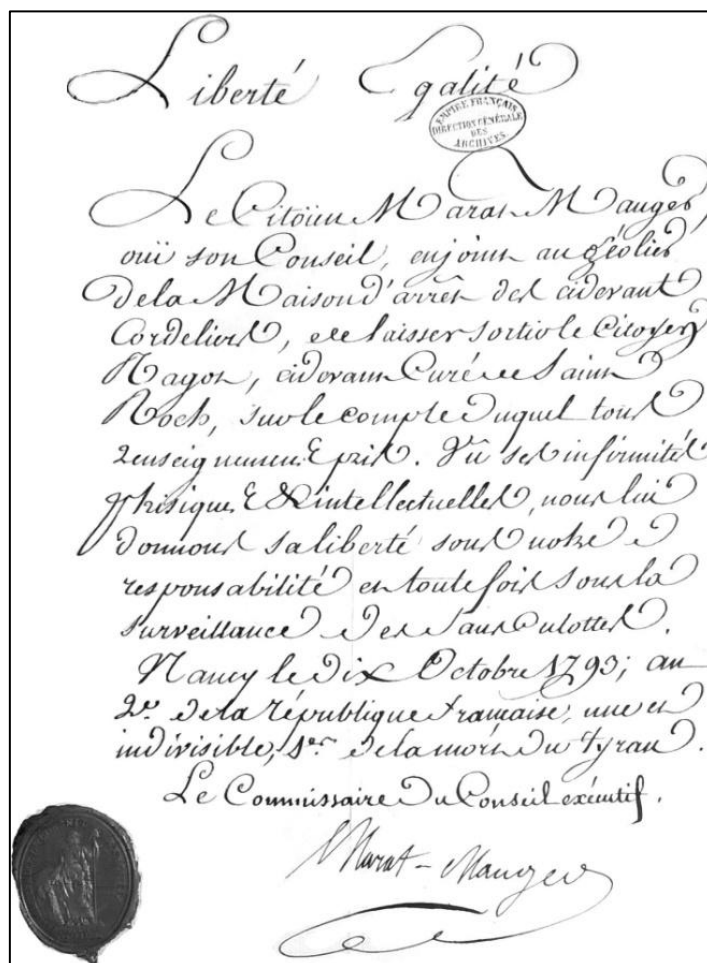 Liberté Egalité
EMPIRE FRANÇAIS
DIRECTION GÉNÉRALE
DES
ARCHIVES.
Le Citoïen Marat Mauger,
ouï son Conseil, enjoint au géolier
de la Maison d'arrêt des cidevant
Cordeliers, de laisser sortir le Citoyen
Ragot, cidevant Curé de Saint
Roch, sur le compte duquel tous
renseignements pris. Vû ses infirmités
phisiques & intellectuelles, nous lui
donnons sa liberté sous notre
responsabilité et toutefois sous la
surveillance des Sans Culottes.
Nancy le dix Octobre 1793; an
2e. de la république française, une et
indivisible, 1er. de la mort du tyran.
Le Commissaire du Conseil exécutif.
Marat-Mauger